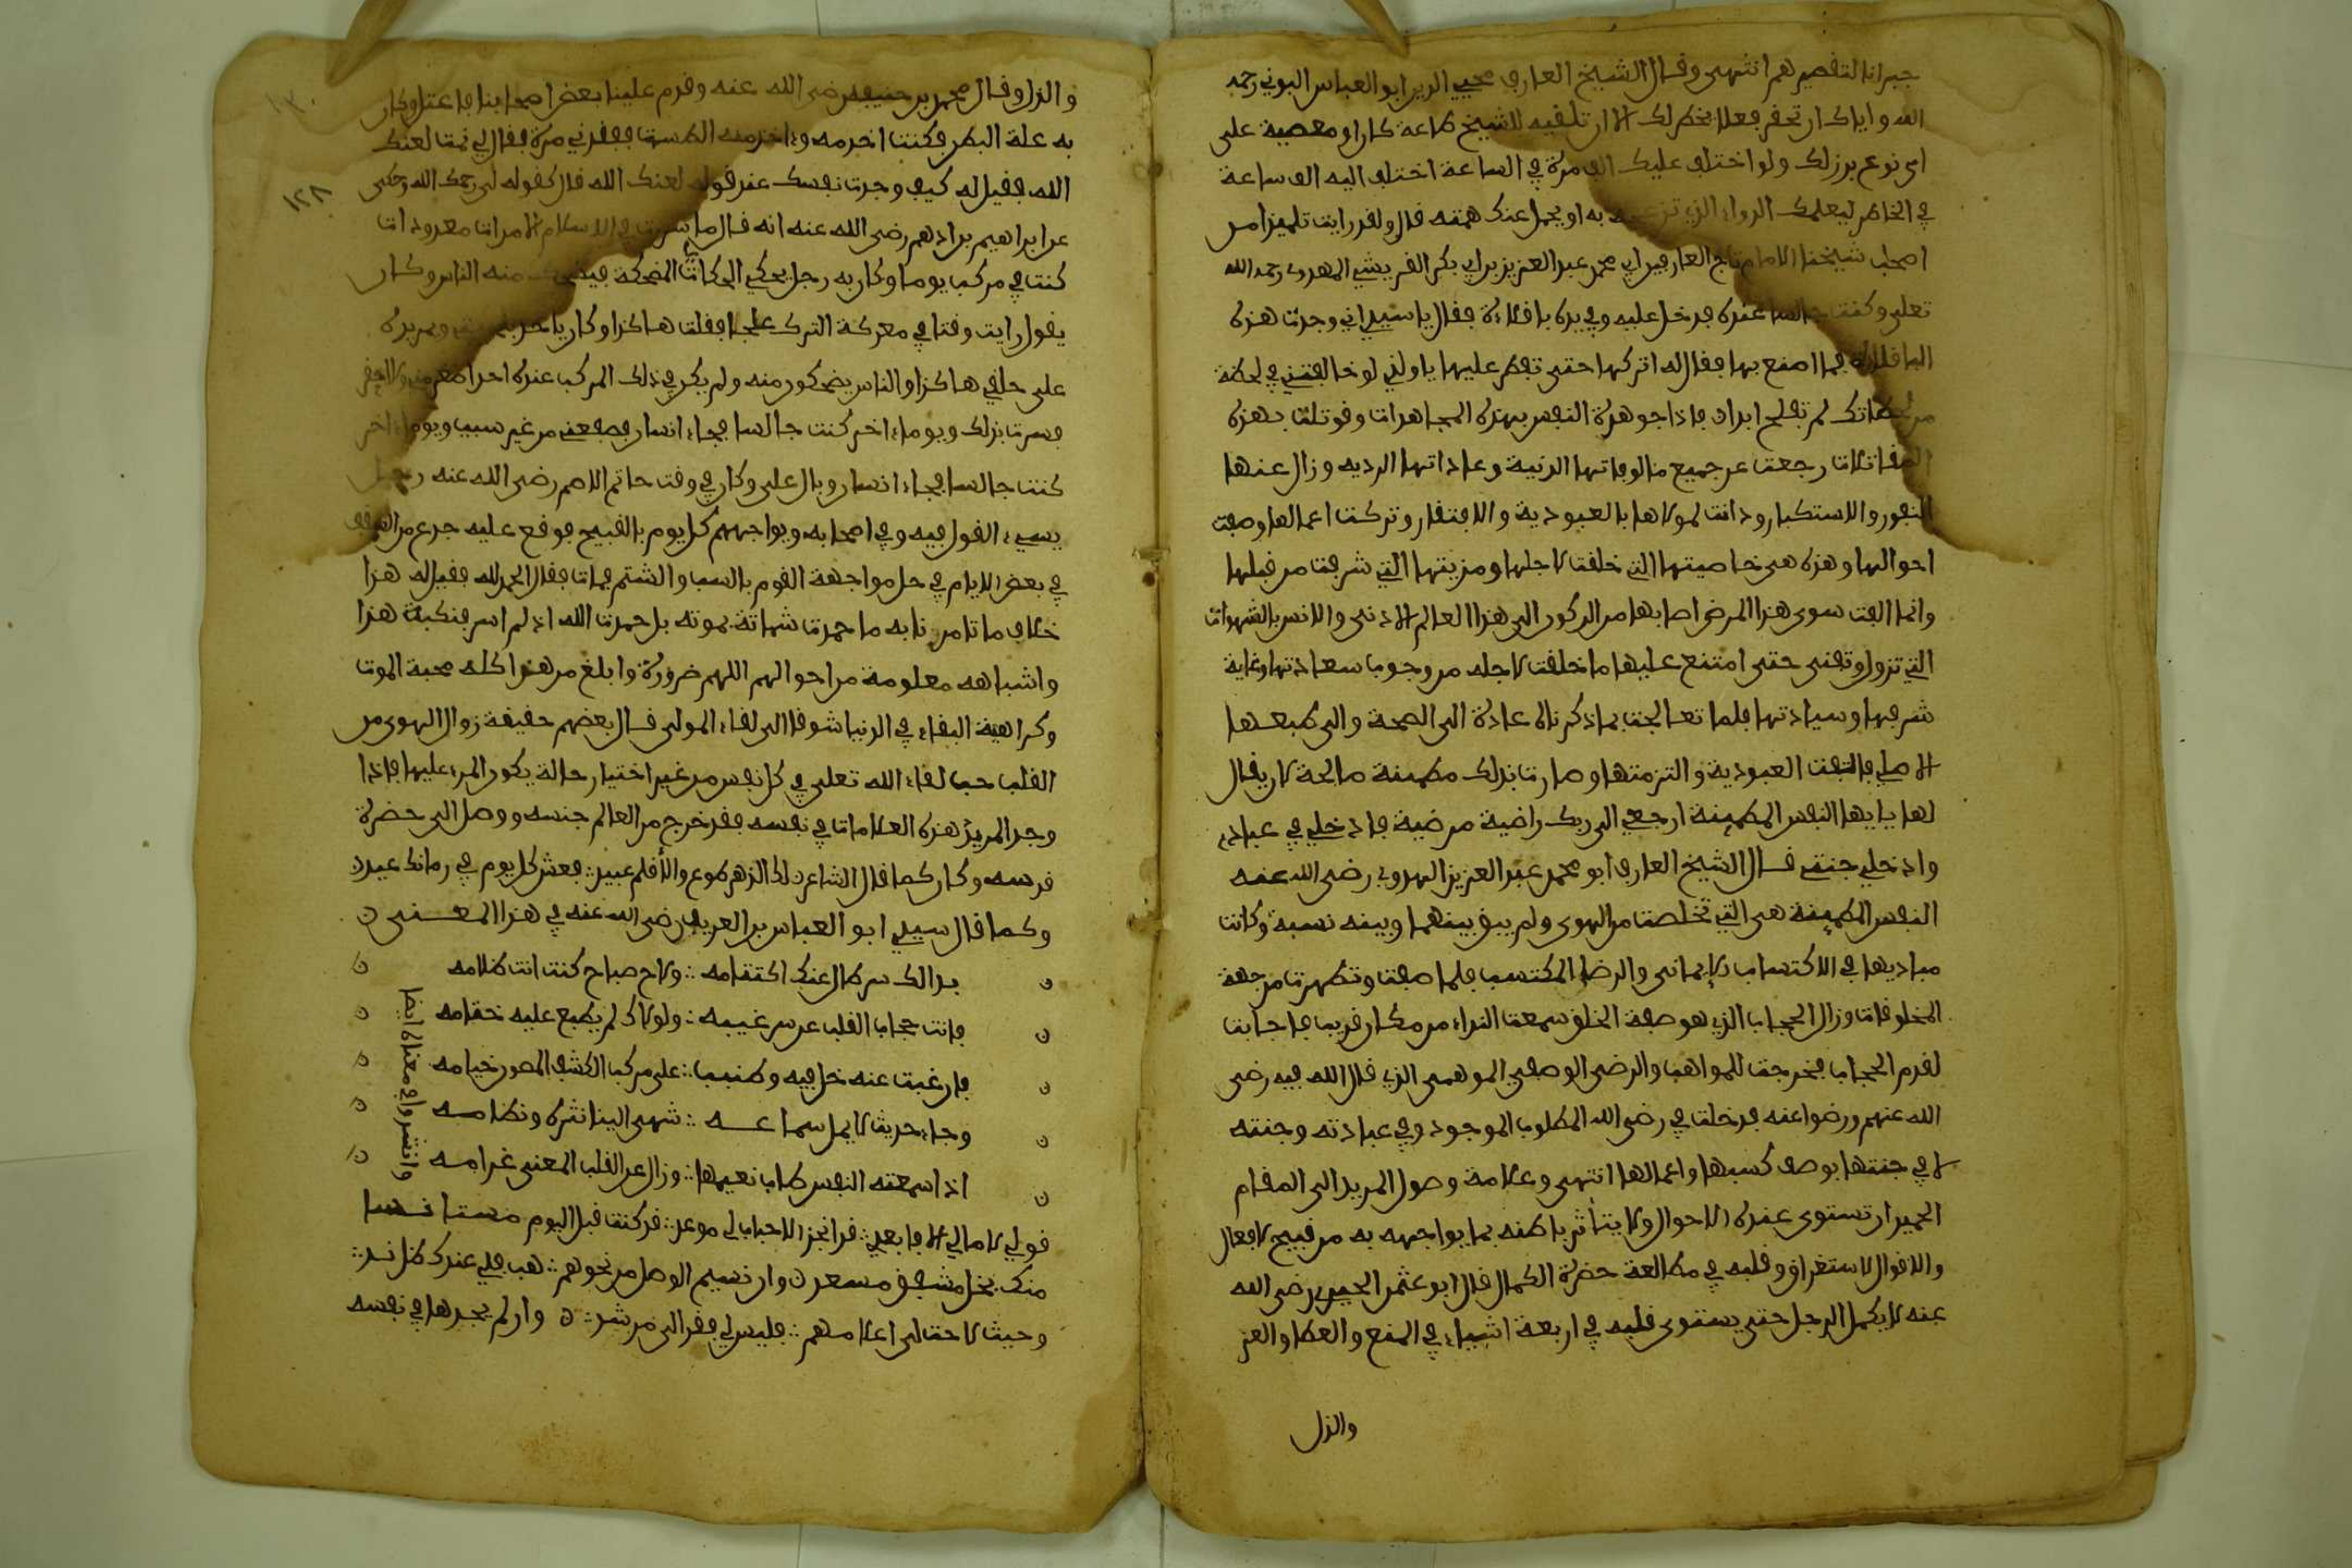 جبرانا لتقصيرهم انتهى وقال الشيخ العارف محيي الدين ابو العباس البوني رحمه
الله واياك ان تحقر فعلا يخطر لك الا ان تلقيه للشيخ طاعة كان او معصية على
اي نوع برز لك ولو اختلف عليك الف مرة في الساعة اختلف اليه الف ساعة
في الخاطر ليعلمك الدواء الذي تزعجه به او يحمل عنك همته قال ولقد رايت تلميذا من
اصحاب شيخنا الامام تاج العارفين ابي محمد عبد العزيز بن ابي بكر القريشي المهدوي رحمه الله
تعلى وكنت جالسا عنده فدخل عليه وفي يده باقلاءة فقال يا سيدي اني وجدت هذه
الباقلاءة فما اصنع بها فقال له اتركها حتى تفطر عليها يا ولدي لو خالفتني في لحظة
من لحظاتك لم تفلح ابدا ن فاذا جوهدت النفس بهذه المجاهدات وقوتلت بهذه
المقاتلات رجعت عن جميع مالوفاتها الدنية وعاداتها الردية وزال عنها
النفور والاستكبار ودانت لمولاها بالعبودية والافتقار وتركت اعمالها وصفت
احوالها وهذه هي خاصيتها التي خلقت لاجلها ومزيتها التي شرفت من قبلها
وانما الفت سوى هذا المرض اصابها من الركون الى هذا العالم الادنى والانس بالشهوات
التي تزول وتفنى حتى امتنع عليها ما خلقت لاجله من وجوب سعادتها وغاية
شرفها وسيادتها فلما تعالجت بما ذكرنا عادت الى الصحة والى طبعها
الاصلي فالتفت العبودية والتزمتها وصارت بذلك مطمئنة صالحة لان يقال
لها يايها النفس المطمئنة ارجعي الى ربك راضية مرضية فادخلي في عبادي
وادخلي جنتي قال الشيخ العارف ابو محمد عبد العزيز المهدوي رضي الله عنه
النفس المطمئنة هي التي تخلصت من الهوى ولم يبق بينهما وبينه نسبة وكانت
مباديها في الاكتساب الايماني والرضا المكتسب فلما صفت وتطهرت من جهة
المخلوقات وزال الحجاب الذي هو صفة الخلق سمعت النداء من مكان قريب فاجابت
لعدم الحجاب فخرجت للمواهب والرضى الوصفي الموهبي الذي قال الله فيه رضي
الله عنهم ورضوا عنه فدخلت في رضى الله المطلوب الموجود وفي عبادته وجنته
لا في جنتها بوصف كسبها واعمالها انتهى وعلامة وصول المريد الى المقام
الحميد ان تستوي عنده الاحوال ولا يتأثر باطنه بما يواجهه به من قبيح الافعال
والاقوال لاستغراق قلبه في مطالعة حضرة الكمال قال ابو عثمن الحيري رضي الله
عنه لا يكمل الرجل حتى يستوي قلبه في اربعة اشياء في المنع والعطا والعز
والذل
والذل وقال محمد بن خفيف رضي الله عنه وقدم علينا بعض اصحابنا فاعتل وكان
به علة البطن فكنت اخدمه واخذ منه الطست ففقدني مرة فقال لي نمت لعنك
الله فقيل له كيف وجدت نفسك عند قوله لعنك الله قال كقوله لي رحمك الله وحكي
١٢٨
عن ابراهيم بن ادهم رضي الله عنه انه قال ما سررت في الاسلام الا مرات معدودات
كنت في مركب يوما وكان به رجل يحكي الحكايات المضحكة فيضحك منه الناس وكان
يقول رايت وقتا في معركة الترك علجا فقلت هاكذا وكان ياخذ بلحيتي ويمر يده
على حلقي هاكذا والناس يضحكون منه ولم يكن في ذلك المركب عنده احدا اصغر مني ولا احقر
فسررت بذلك ويوما اخر كنت جالسا فجاء انسان فصفعني من غير سبب ويوما اخر
كنت جالسا فجاء انسان وبال علي وكان في وقت حاتم الاصم رضي الله عنه رجل
يسيء القول فيه وفي اصحابه ويواجههم كل يوم بالقبيح فوقع عليه جذع من السقف
في بعض الايام في حال مواجهة القوم بالسب والشتم فمات فقال الحمد لله فقيل له هذا
خلاف ما تامرنا به ما حمدت شماتة بموته بل حمدت الله اذ لم اسر بنكبة هذا
واشباهه معلومة من احوالهم اللهم ضرورة وابلغ من هذا كله محبة الموت
وكراهية البقاء في الدنيا شوقا الى لقاء المولى قال بعضهم حقيقة زوال الهوى من
القلب حب لقاء الله تعلى في كل نفس من غير اختيار حالة يكون المرء عليها فاذا
وجد المريد هذه العلامات في نفسه فقد خرج من العالم جنسه ووصل الى حضرة
قدسه وكان كما قال الشاعر ن لك الدهر طوع والأنام عبيد :: فعش كل يوم في زمانك عيد ن
وكما قال سيدي ابو العباس بن العريف رضي الله عنه في هذا المعنى ن
ن بدا لك سر طال عنك اكتتامه :: ولاح صباح كنت انت ظلامه ن
ن فانت حجاب القلب عن سر غيبه :: ولولاك لم يطبع عليه ختامه ن
ن فان غبت عنه حل فيه وطنبت :: على مركب الكشف المصون خيامه ن
ن وجاء حديث لا يمل سماعه :: شهي الينا نثره ونظامه ن
ن اذا سمعته النفس طاب نعيمها :: وزال عن القلب المعنى غرامه ن
وانشدوا في معناه ايضا
قولي لامالي الا فابعدي :: قد انجز الاحباب لي موعدي :: قد كنت قبل اليوم مستانسا
منك بخل مشفق مسعد ن وان نسيم الوصل من نحوهم :: هب فلي عندك ظل ندي ::
وحيث لاحت لي اعلامهم :: فليس لي فقر الى مرشد :: ن وان لم يجدها في نفسه